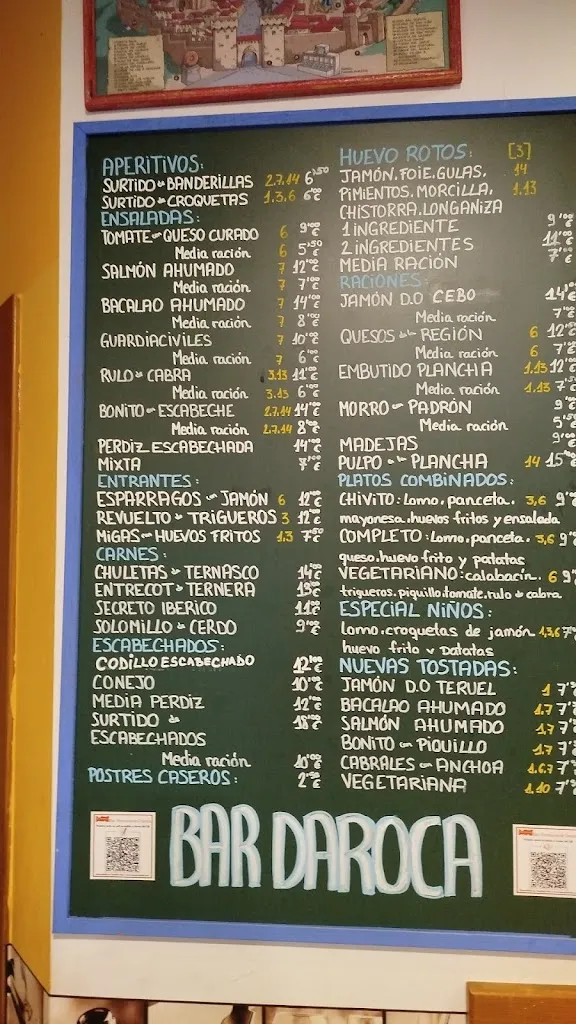 APERITIVOS:
SURTIDO de BANDERILLAS 2.7.14 6'50
SURTIDO de CROQUETAS 1.3.6 6'00€
ENSALADAS:
TOMATE con QUESO CURADO 6 9'00€
Media ración 6 5'50€
SALMÓN AHUMADO 7 12'00€
Media ración 7 7'00€
BACALAO AHUMADO 7 14'00€
Media ración 7 8'00€
GUARDIACIVILES 7 10'00€
Media ración 7 6'00€
RULO de CABRA 3.13 11'00€
Media ración 3.13 6'00€
BONITO en ESCABECHE 2.7.14 14'00€
Media ración 2.7.14 8'00€
PERDIZ ESCABECHADA 14'00€
MIXTA 7'00€
ENTRANTES:
ESPARRAGOS con JAMÓN 6 12'00€
REVUELTO de TRIGUEROS 3 12'00€
MIGAS con HUEVOS FRITOS 1.3 7'50€
CARNES:
CHULETAS de TERNASCO 14'00€
ENTRECOT de TERNERA
SECRETO IBERICO
SOLOMILLO de CERDO 9'00€
ESCABECHADOS:
CODILLO ESCABECHADO 12'00€
CONEJO 10'00€
MEDIA PERDIZ 12'00€
SURTIDO de 18'00€
ESCABECHADOS
Media ración 10'00€
POSTRES CASEROS:
HUEVO ROTOS: [3]
JAMÓN, FOIE, GULAS, 14
PIMIENTOS, MORCILLA, 1.13
CHISTORRA, LONGANIZA
1 INGREDIENTE 9'00€
2 INGREDIENTES 11'00€
MEDIA RACIÓN 7'00€
RACIONES:
JAMÓN D.O CEBO
Media ración
QUESOS de la REGIÓN 6
Media ración 6
EMBUTIDO PLANCHA 1.13
Media ración 1.13
MORRO con PADRÓN
Media ración
MADEJAS
PULPO a la PLANCHA 14
PLATOS COMBINADOS:
CHIVITO: Lomo, panceta, 3,6
mayonesa, huevos fritos y ensalada
COMPLETO: Lomo, panceta, 3,6
queso, huevo frito y patatas
VEGETARIANO: calabacín, 6
trigueros, piquillo, tomate, rulo de cabra
ESPECIAL NIÑOS:
lomo, croquetas de jamón, 1,3,6
huevo frito y patatas
NUEVAS TOSTADAS:
JAMÓN D.O TERUEL 1
BACALAO AHUMADO 1.7
SALMÓN AHUMADO 1.7
BONITO con PIQUILLO 1.7
CABRALES con ANCHOA 1.6.7
VEGETARIANA 1.10
BAR DAROCA